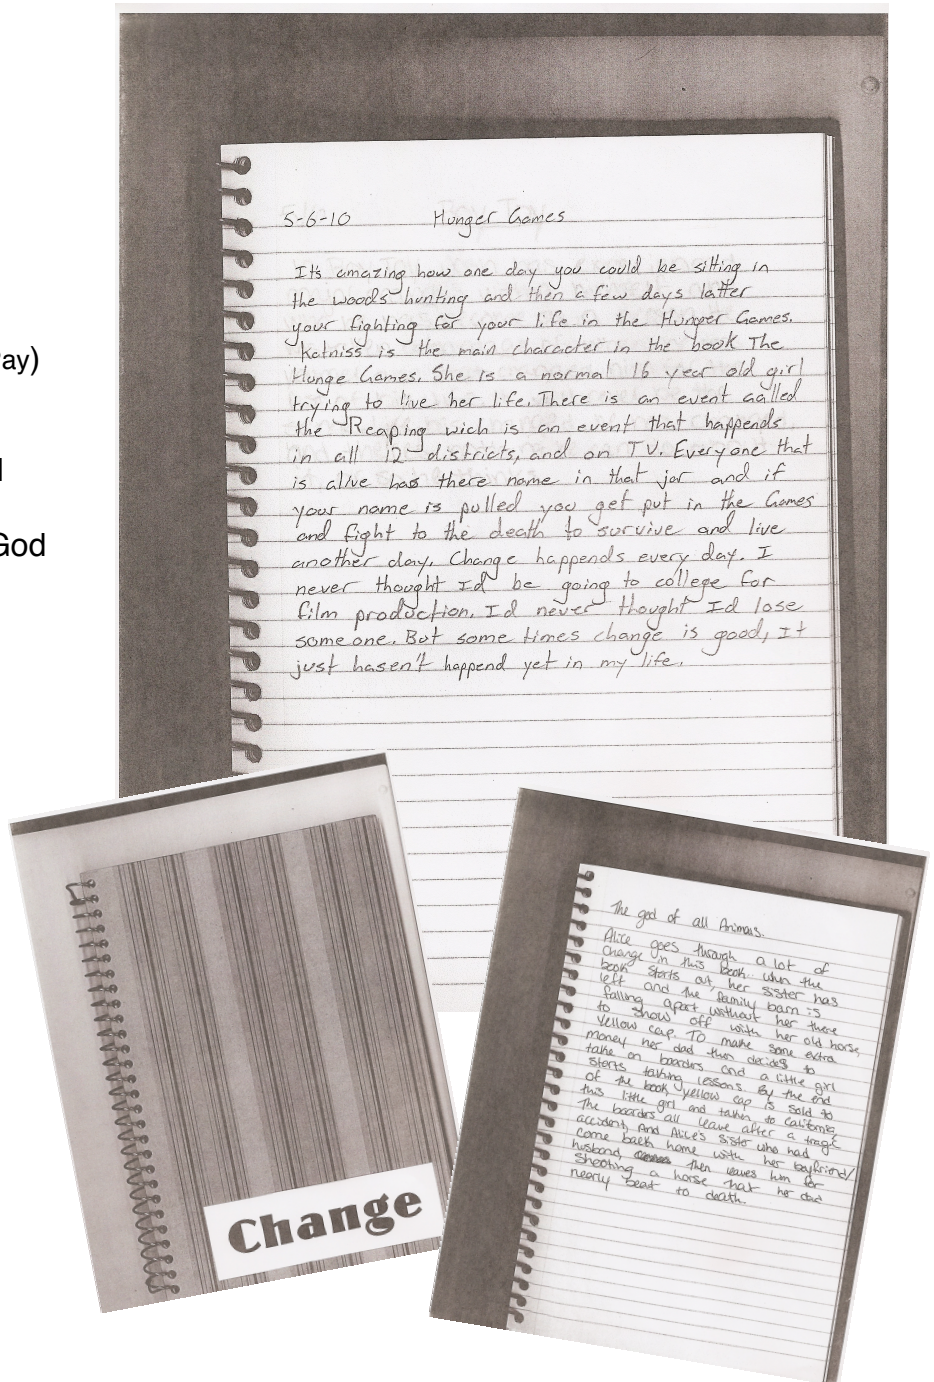 ay)
God
5-6-10 Hunger Games
It's amazing how one day you could be sitting in
the woods hunting and then a few days latter
your fighting for your life in the Hunger Games.
Katniss is the main character in the book The
Hunge Games. She is a normal 16 year old girl
trying to live her life. There is an event called
the Reaping wich is an event that happends
in all 12 districts, and on TV. Everyone that
is alive has there name in that jar and if
your name is pulled you get put in the Games
and fight to the death to survive and live
another day. Change happends every day. I
never thought I'd be going to college for
film production. I'd never thought I'd lose
someone. But some times change is good, It
just hasen't happend yet in my life.
Change
The god of all Animals.
Alice goes through a lot of
change in this book. when the
book starts out, her sister has
left and the family barn is
falling apart without her there
to show off with her old horse,
Yellow cap. TO make some extra
money her dad then decides to
take on boarders and a little girl
starts taking lessons. By the end
of the book yellow cap is sold to
this little girl and taken to california,
The boarders all leave after a tragic
accident, And Alice's sister who had
come back home with her boyfriend/
husband, then leaves him for
shooting a horse that her dad
nearly beat to death.